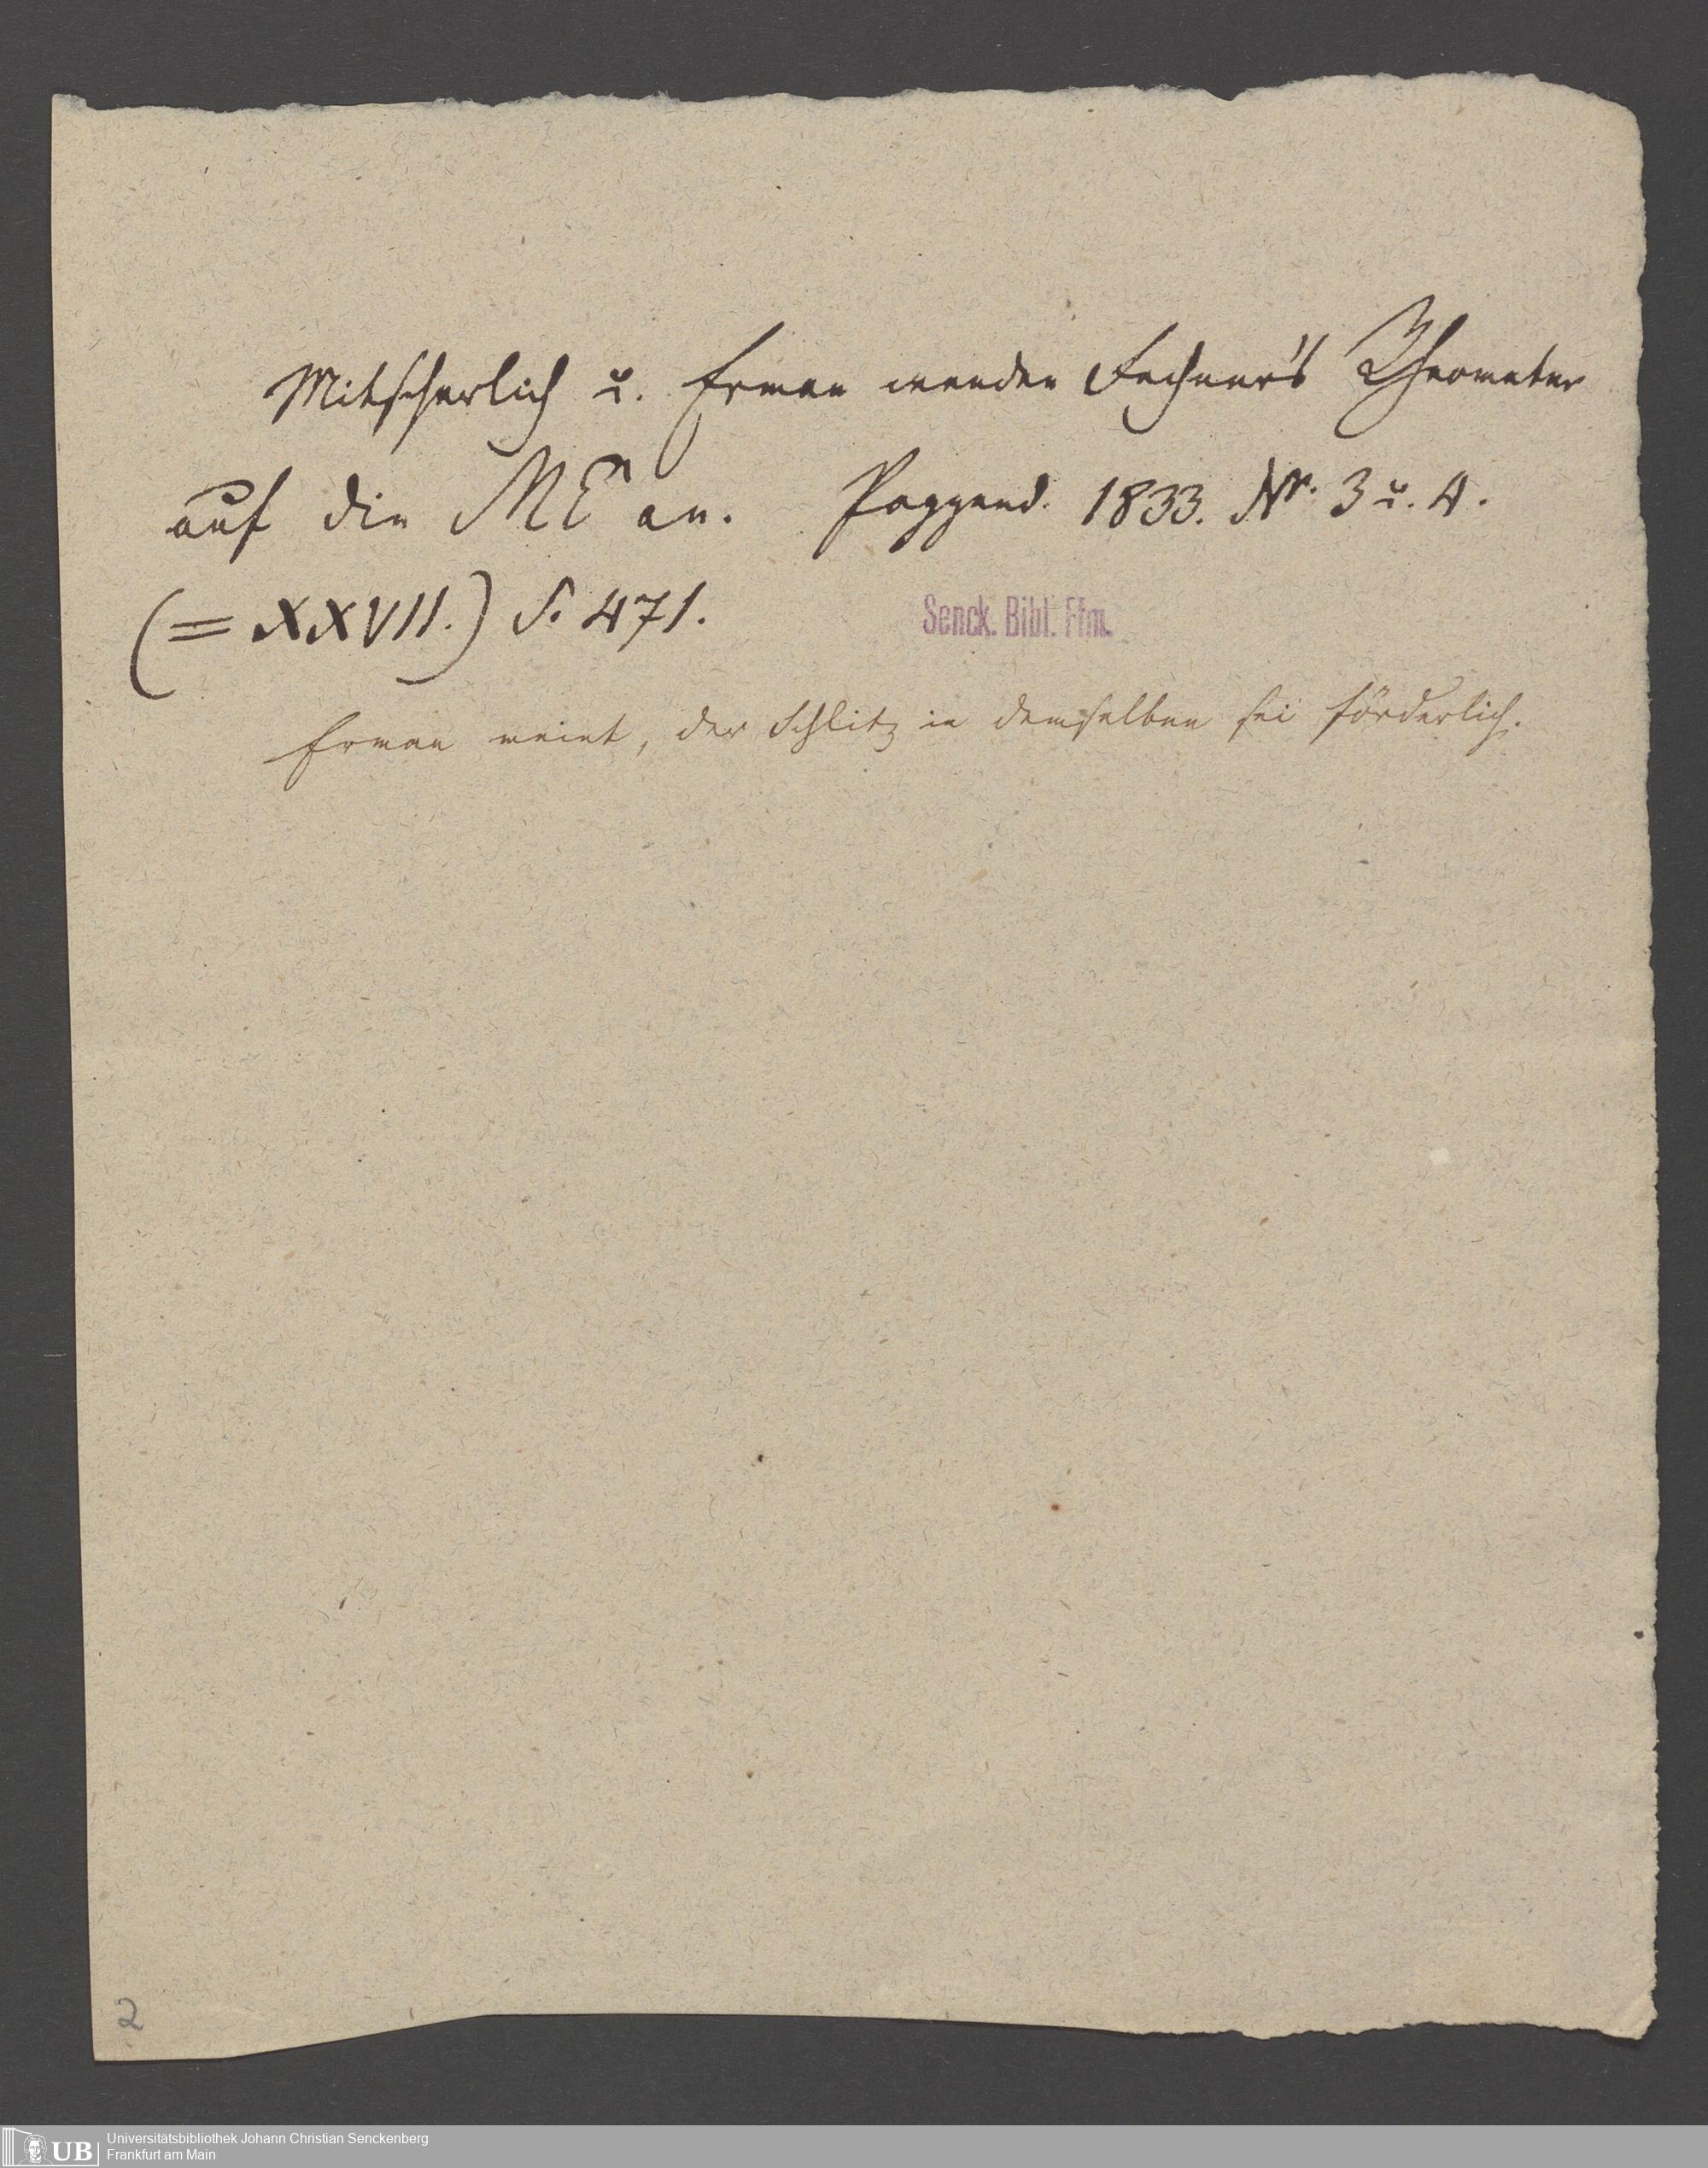 Mitscherlich u. Erman wenden Fechner's Rheometer
auf die ME an. Poggend. 1833. Nr. 3 u. 4.
(= XXVII.) S. 471.
Senck. Bibl. Ffm.
Erman meint, der Schlitz in demselben sei förderlich.
2
UB
Universitätsbibliothek Johann Christian Senckenberg
Frankfurt am Main